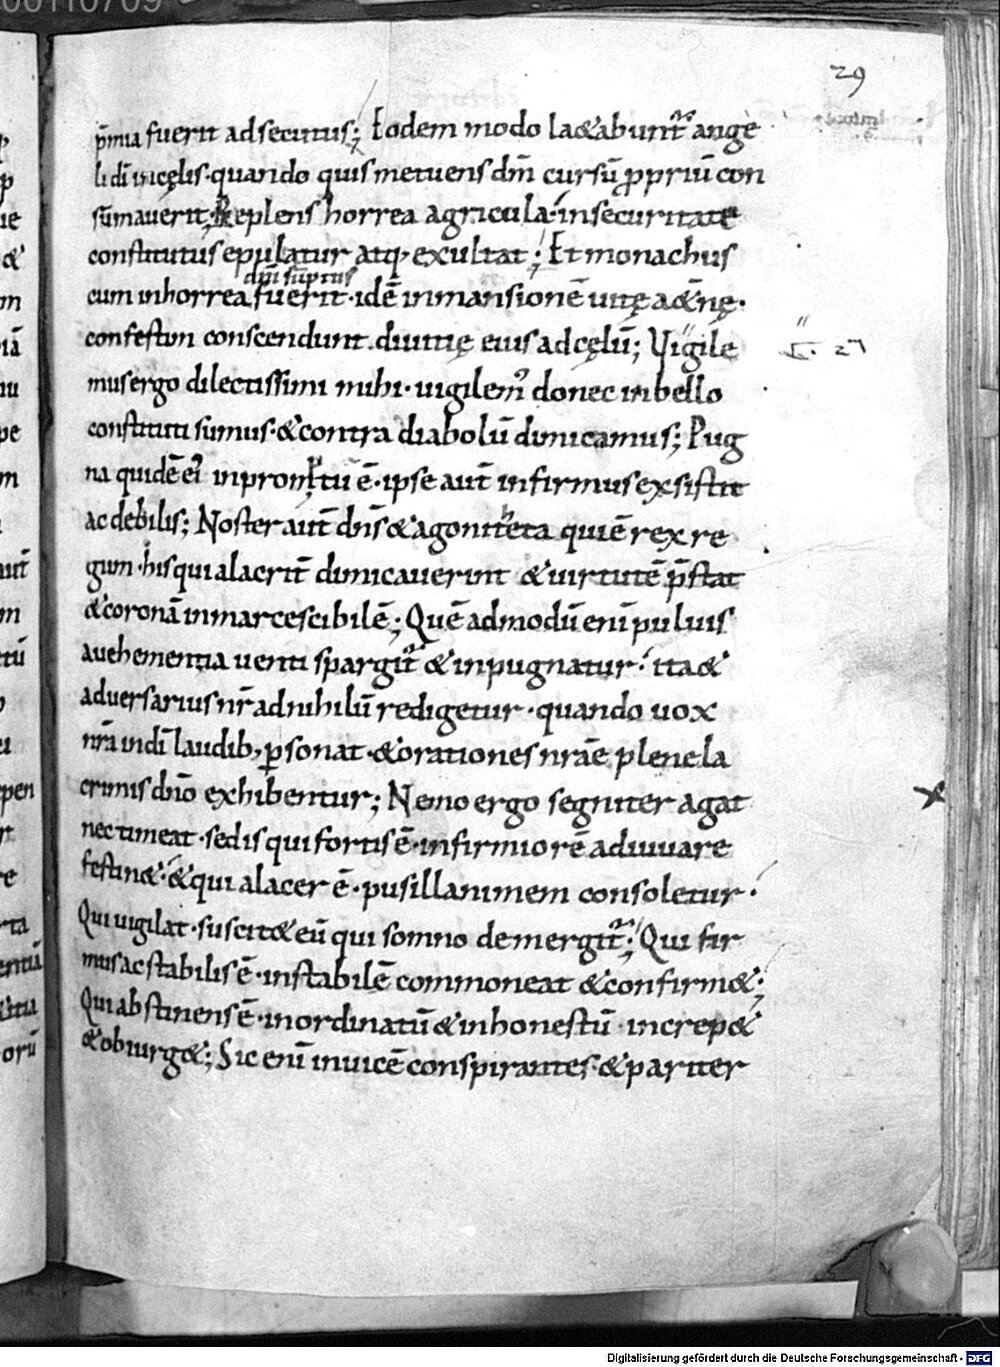 29
p̄mia fuerit adsecutus; Eodem modo lae&abunt᷑ ange
li dī in cęlis· quando quis metuens dm̄ cursū ꝓpriū con
sūmauerit; Replens horrea agricula· in securitate
constitutus epulatur atq; exultat; Et monachus
dn̄i sūptus
cum in horrea fuerit· idē in mansionē uitę a&nę·
confestim conscendunt diuitię eius ad cęlū; Uigile
mus ergo dilectissimi mihi· uigilem᷒ donec in bello
constituti sumus· & contra diabolū dimicamus; Pug
na quidē ei᷒ in promptu ē· ipse aut̄ infirmus exsistit
ac debilis; Noster aut̄ dn̄s & agonitheta qui ē rex re
gum· his qui alacrit̄ dimicauerint & uirtutē p̄stat
& coronā inmarcescibilē; Quē admodū enī puluis
a uehementia uenti spargit᷑ & inpugnatur· ita &
aduersarius nr̄ ad nihilū redigetur· quando uox
nr̄a in dī laudib; ꝑsonat· & orationes nr̄ae plene la
crimis dn̄o exhibentur; Nemo ergo segniter agat
nec timeat· sed is qui fortis ē· infirmiorē adiuuare
festin&· & qui alacer ē· pusillanimem consoletur·
Qui uigilat· suscit& eū qui somno demergit᷑; Qui fir
mus ac stabilis ē· instabilē commoneat & confirm&;
Qui abstinens ē· inordinatū & inhonestū increp&
& obiurg&; Sic enī inuicē conspirantes & pariter
Digitalisierung gefördert durch die Deutsche Forschungsgemeinschaft - DFG